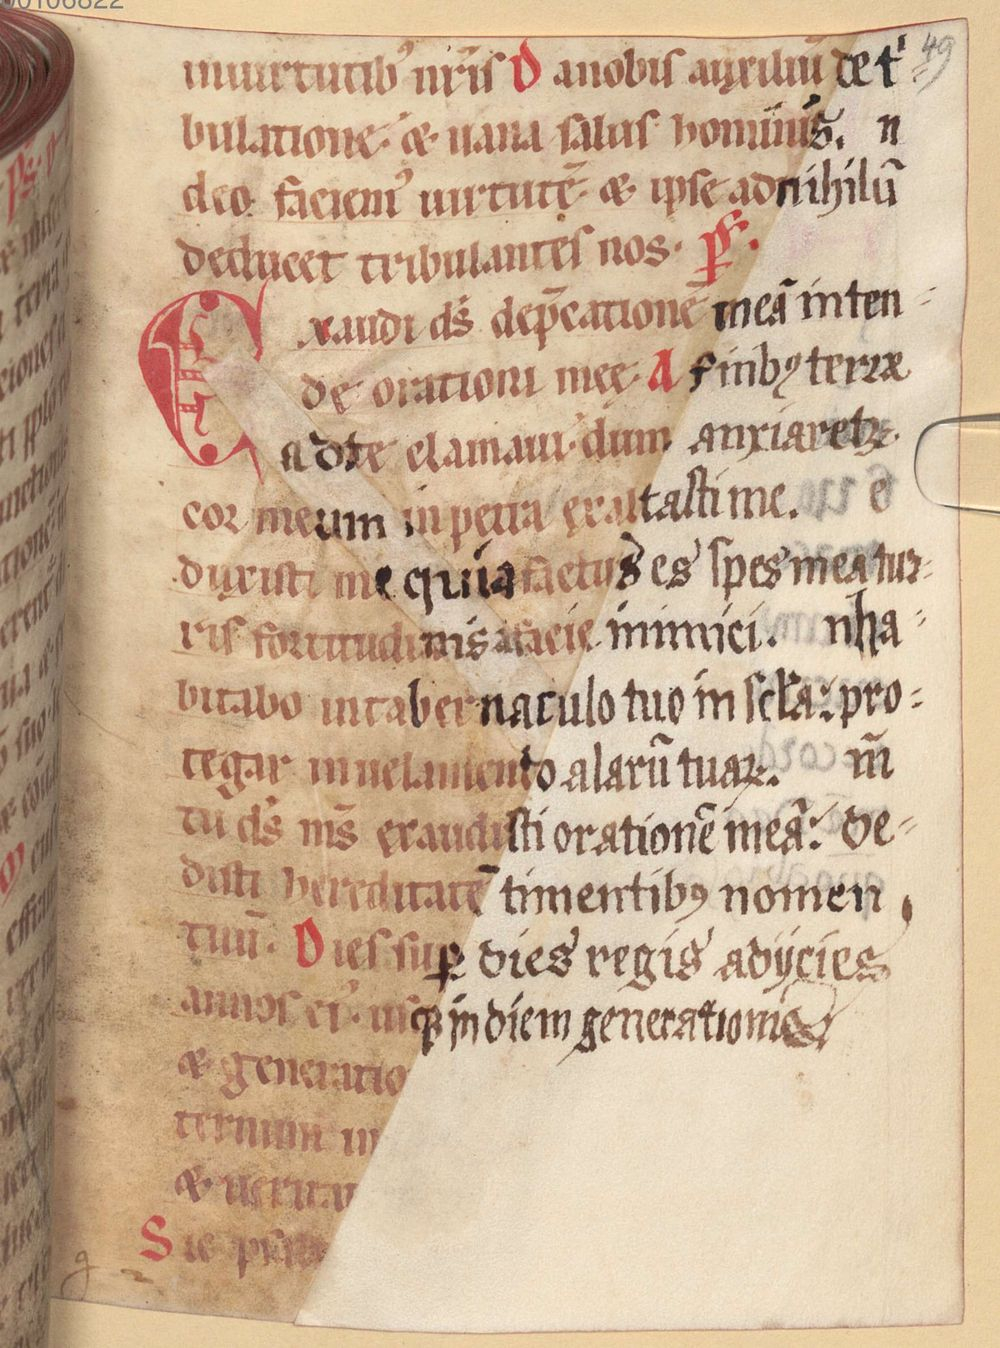 00106822
49
inuirtutib' nr̄is D anobis auxiliū de t'
bulatione· & uana salus hominis. n
deo faciem' uirtutē· & ipse adnihilū
deducet tribulantes nos· ps̄.
Exaudi ds̄ dep̄cationē meā inten
de orationi meę· A finibꝯ terræ
ad te clamaui· dum anxiaretꝛ
cor meum in petra exaltasti me. e
duxisti me quia factus es spes mea tur
ris fortitudinis afacie inimici. nha
bitabo intabernaculo tuo in scl̄a: pro
tegar inuelamento alarū tuaꝝ. m̄
tu ds̄ ms̄ exaudisti orationē meā: de
disti hereditatē timentibꝯ nomen
tuū. Dies sup̲ dies regis adijcies
annos ei'· usqꝫ in diem generationis
& generatio
ternum in
& uerita
Sic
g